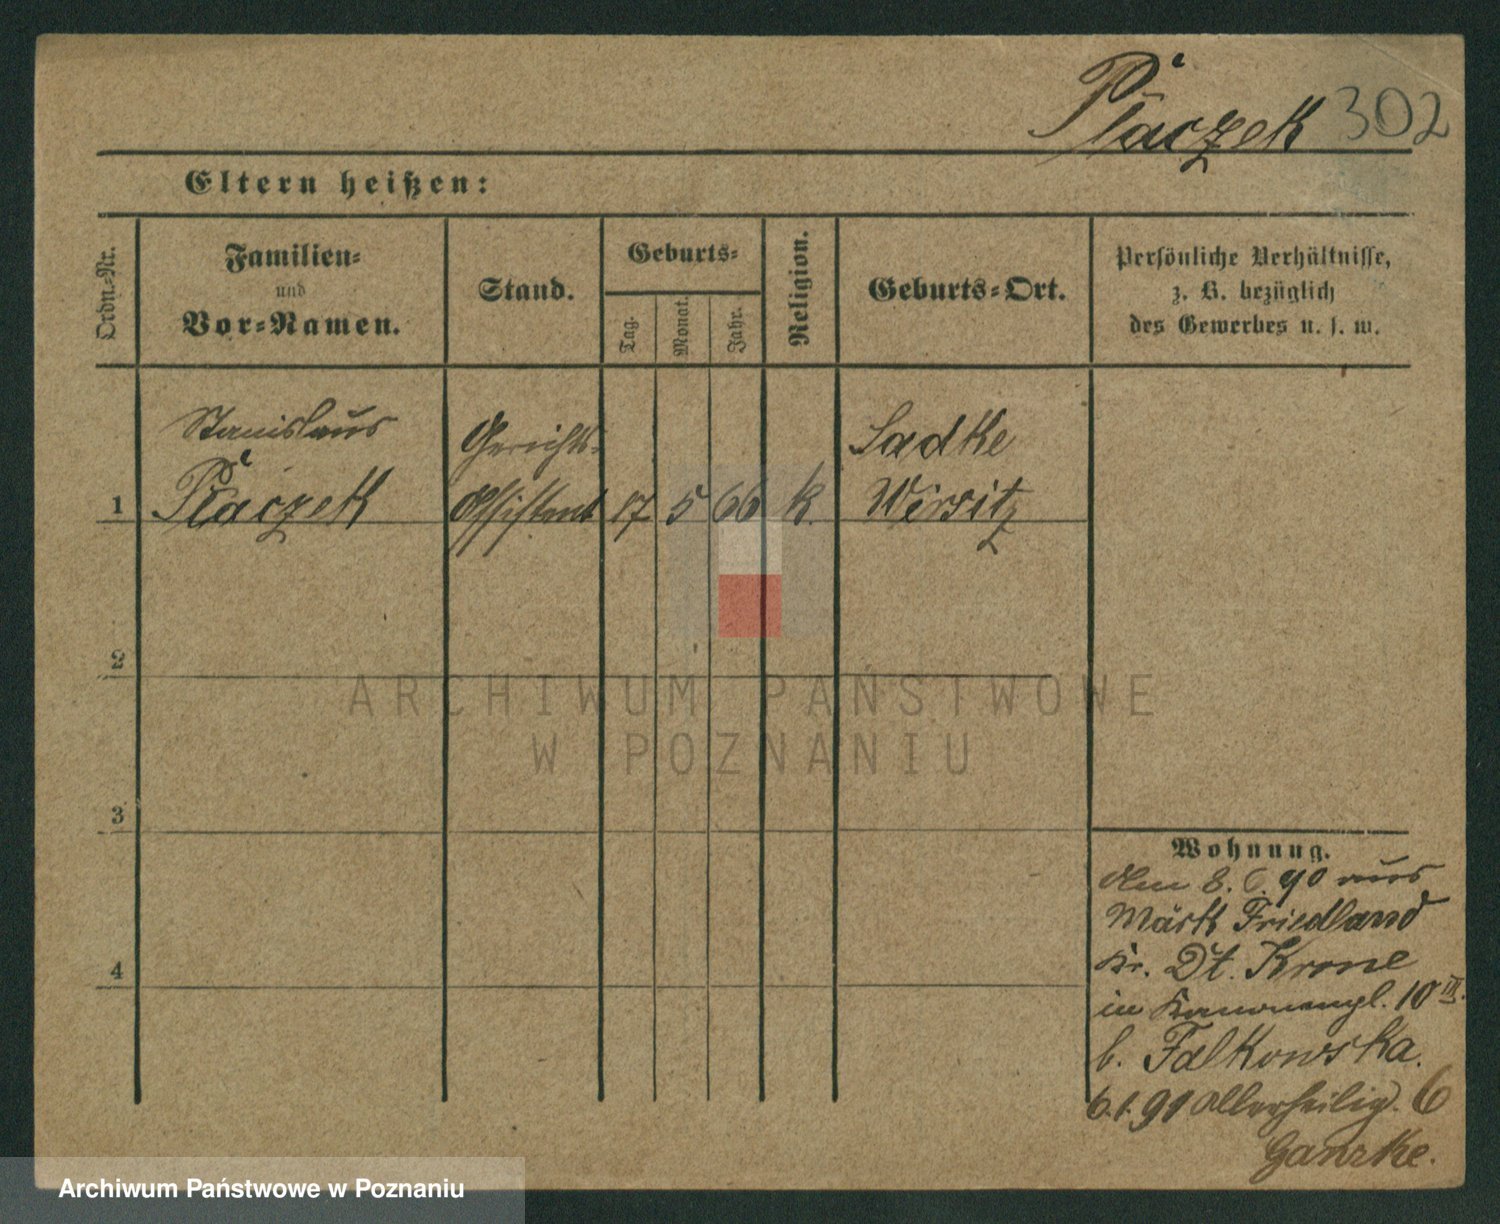 Płaczek 302
Eltern heißen:
Ordn.-Nr.
Familien-
und
Vor-Namen.
Stand.
Geburts-
Tag.
Monat.
Jahr.
Religion.
Geburts-Ort.
Persönliche Verhältnisse,
z. B. bezüglich
des Gewerbes u. s. w.
Stanislaus
Płaczek
Gerichts-
Assistent
1
17 5 66 k.
Sadke
Wirsitz
2
3
4
Wohnung.
Am 8. 6. 90 aus
Märk Friedland
Kr. Dt. Krone
in Kanonenpl. 10 III.
b. Falkowska.
6.1.91 Allerheilig. 6
Ganzke.
ARCHIWUM PAŃSTWOWE
W POZNANIU
Archiwum Państwowe w Poznaniu